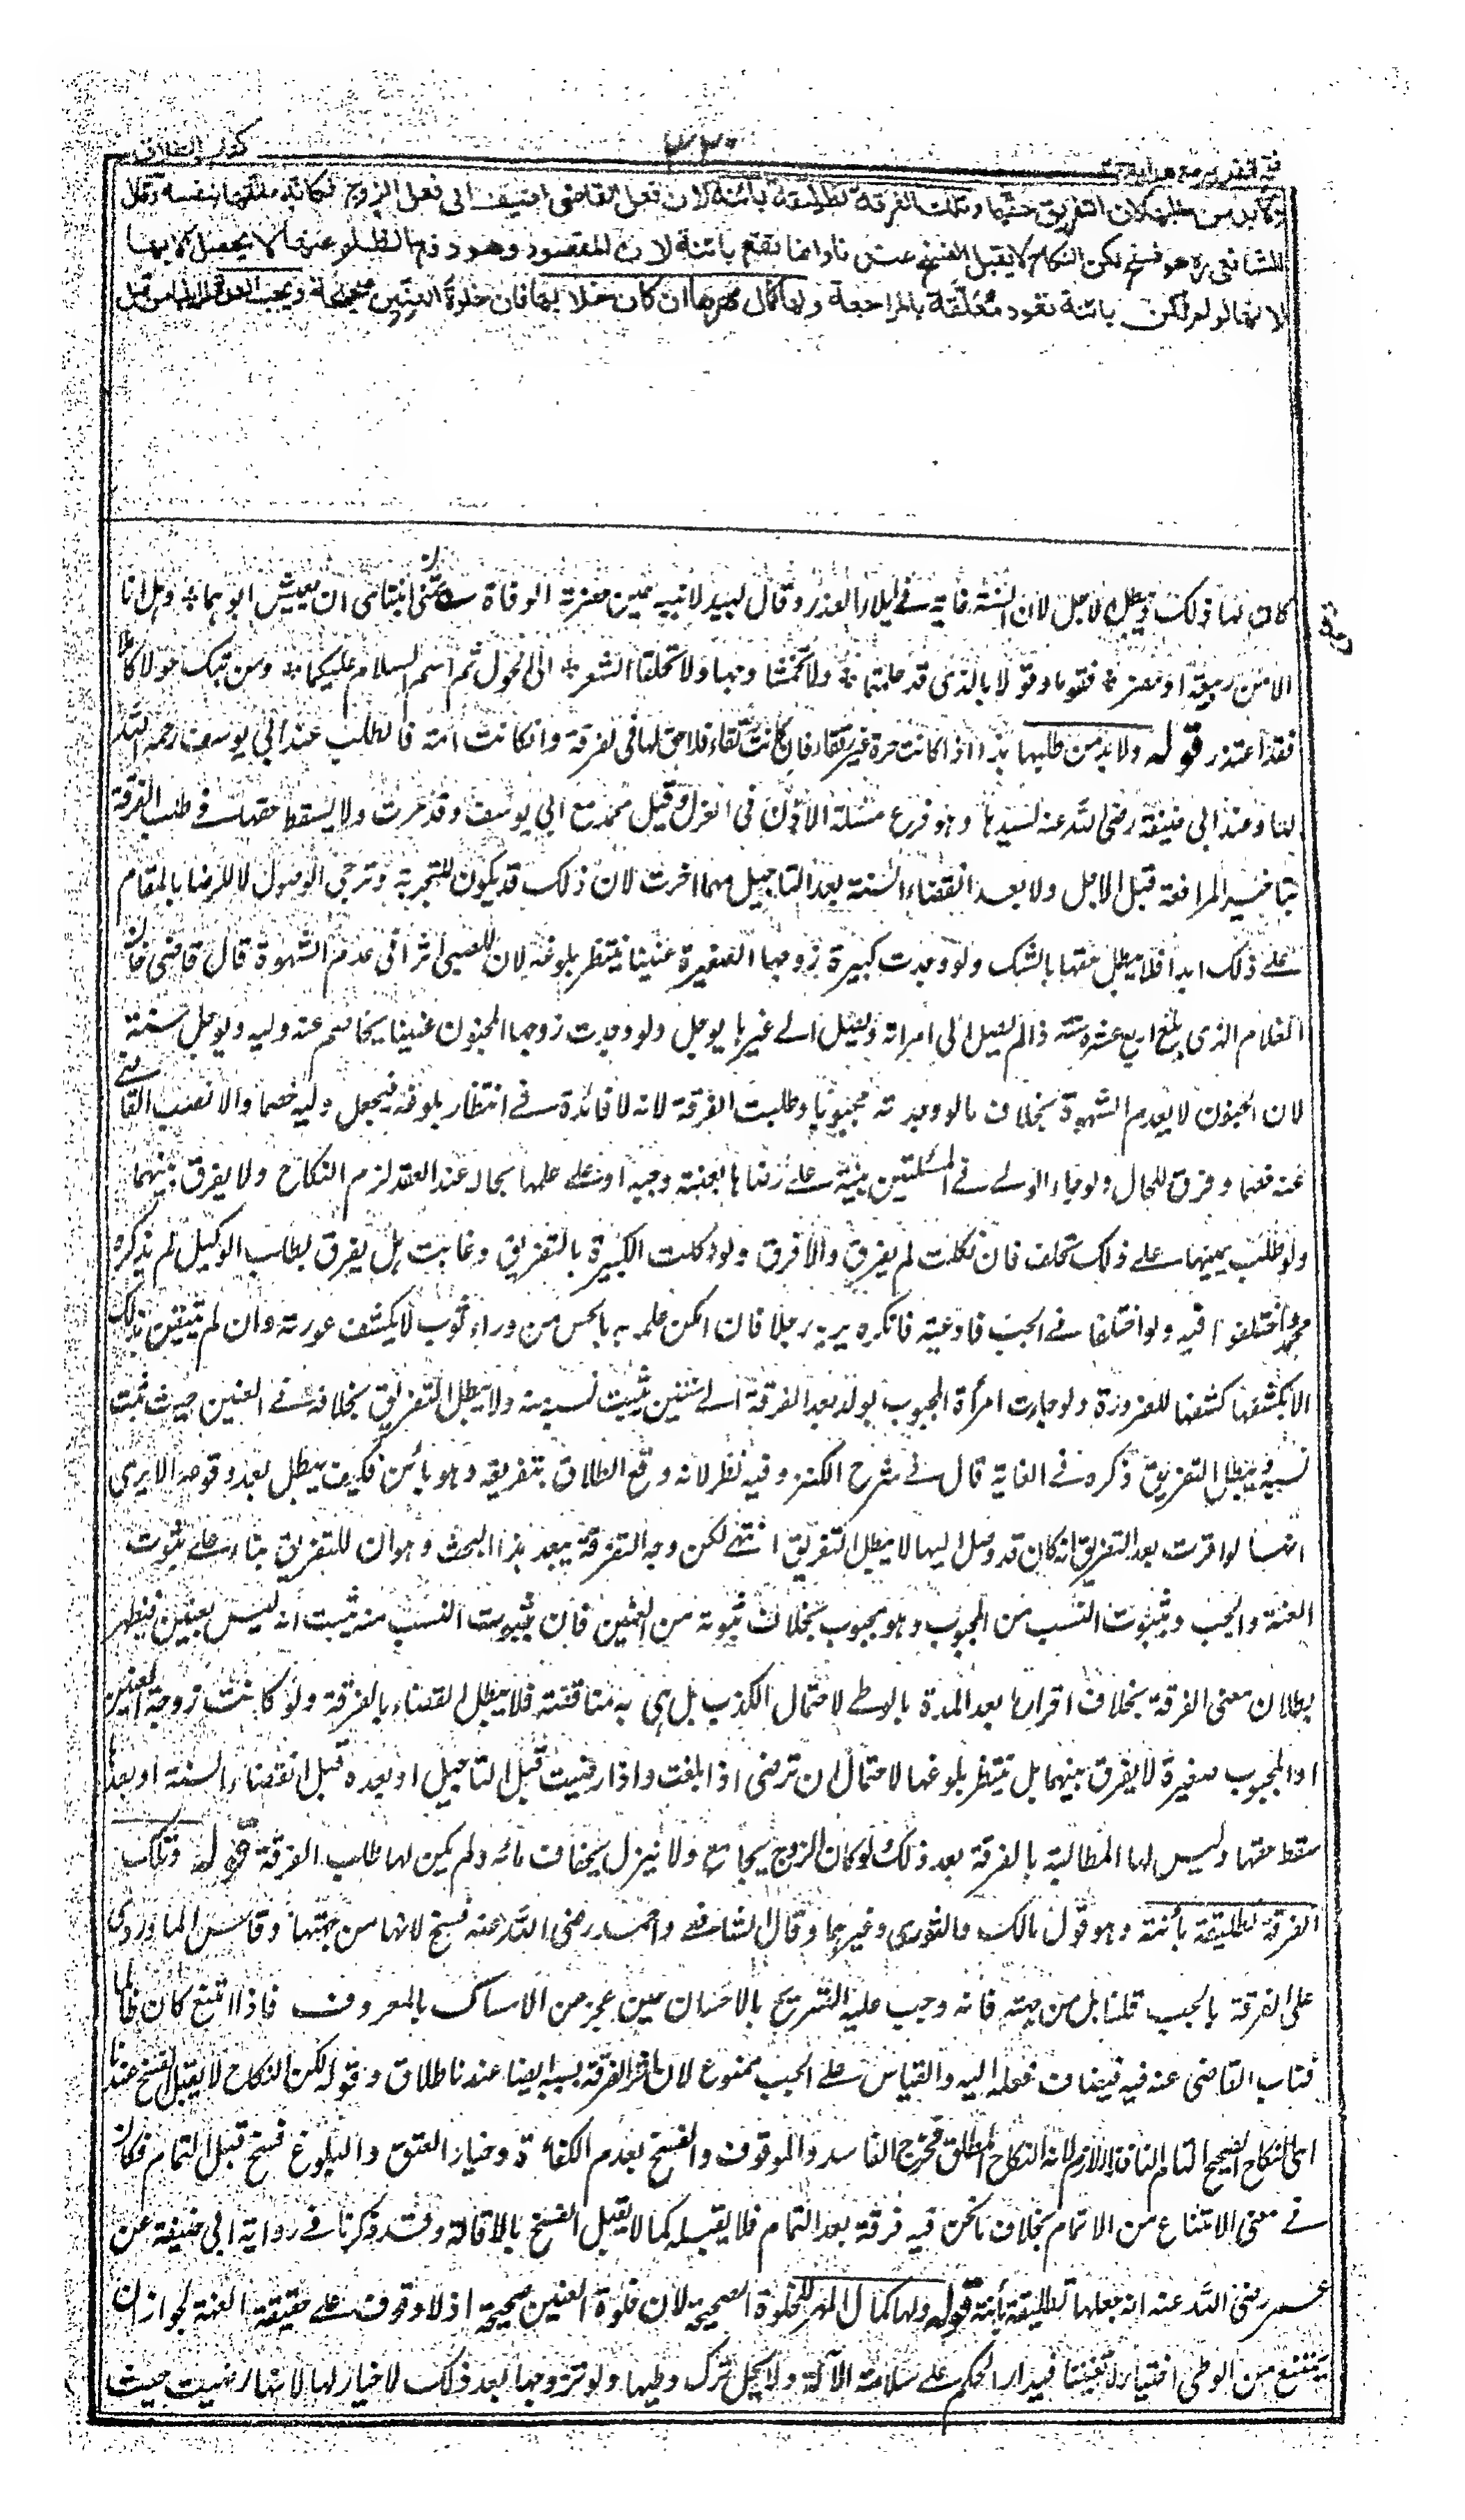 فتح القدير مع هداية
٢٢٠
كتاب الطلاق
ولا بد من طلبها لان التفريق حقها وتلك الفرقة تطليقة بائنة لان فعل القاضي اضيف الى فعل الزوج فكانه طلقها بنفسه وقال
الشافعي ره هو فسخ لكن النكاح لا يقبل الفسخ عندنا وانما تقع بائنة لان المقصود وهو دفع الظلم عنها لا يحصل الا بها
لانها لو لم تكن بائنة تعود معلقة بالمراجعة ولها كمال مهرها ان كان خلا بها فان خلوة العنين صحيحة ويجب العدة لما بينا من قبل
كان لها ذلك ويبطل الاجل لان السنة غاية في ابلاء العذر وقال لبيد لابنتيه حين حضرته الوفاة تمنى ابنتاي ان يعيش ابوهما * وهل انا
الا من ربيعة او مضر * فقوما وقولا بالذي قد علمتما * ولا تخمشا وجها ولا تحلقا الشعر * الى الحول ثم اسم السلام عليكما * ومن يبك حولا كاملا
فقد اعتذر قوله ولا بد من طلبها هذا اذا كانت حرة غير رتقاء فان كانت رتقاء فلا حق لها في الفرقة وان كانت امة فالطلب عند ابي يوسف رحمه الله
لها وعند ابي حنيفة رضى الله عنه لسيدها وهو فرع مسئلة الاذن في العزل وقيل محمد مع ابي يوسف وقد مرت ولا يسقط حقها في طلب الفرقة
بتاخير المرافعة قبل الاجل ولا بعد انقضاء السنة بعد التاجيل مهما اخرت لان ذلك قد يكون للتجربة وترجى الوصول لا للرضا بالمقام
على ذلك ابدا فلا يبطل حقها بالشك ولو وجدت كبيرة زوجها الصغيرة عنينا ينتظر بلوغه لان للصبى اثرا في عدم الشهوة قال قاضي خان
الغلام الذي بلغ اربع عشرة سنة اذا لم يصل الى امراته ويصل الى غيرها يوجل ولو وجدت زوجها المجنون عنينا يخاصم عنه وليه ويوجل سنة
لان الجنون لا يعدم الشهوة بخلاف ما لو وجدته مجبوبا وطلبت الفرقة لانه لا فائدة في انتظار بلوغه فيجعل وليه خصما والا نصب القاضي
عنه خصما وفرق للحال ولو جاء الولي في المسئلتين ببينة على رضاها بعنته وجبه او على علمها بحاله عند العقد لزم النكاح ولا يفرق بينهما
ولو طلب يمينها على ذلك تحلف فان نكلت لم يفرق والا فرق ولو وكلت الكبيرة بالتفريق وغابت هل يفرق بطلب الوكيل لم يذكره
محمد واختلفوا فيه ولو اختلفا في الجب فادعته فانكره يريه رجلا فان امكن علمه به بالجس من وراء ثوب لا يكشف عورته وان لم يتيقن بذلك
الا بكشفها كشفها للضرورة ولو جاءت امرأة المجبوب بولد بعد الفرقة الى سنتين يثبت نسبه منه ولا يبطل التفريق بخلافه في العنين حيث يثبت
نسبه ويبطل التفريق ذكره في الغاية قال في شرح الكنز وفيه نظر لانه وقع الطلاق بتفريقه وهو بائن فكيف يبطل بعد وقوعه الا يرى
انها لو اقرت بعد التفريق انه كان قد وصل اليها لا يبطل التفريق انتهى لكن وجه التفرقة يبعد هذا البحث وهو ان للتفريق بناء على ثبوت
العنة والجب وثبوت النسب من المجبوب وهو مجبوب بخلاف ثبوته من العنين فان بثبوت النسب منه يثبت انه ليس بعنين فيظهر
بطلان معنى الفرقة بخلاف اقرارها بعد المدة بالوطي لاحتمال الكذب بل هي به مناقضة فلا يبطل القضاء بالفرقة ولو كانت زوجة العنين
او المجبوب صغيرة لا يفرق بينهما بل ينتظر بلوغها لاحتمال ان ترضى اذا بلغت واذا رضيت قبل التاجيل او بعده قبل انقضاء السنة او بعدها
سقط حقها وليس لها المطالبة بالفرقة بعد ذلك ولو كان الزوج يجامع ولا ينزل لجفاف مائه ولم يكن لها طلب الفرقة قوله وتلك
الفرقة تطليقة بائنة وهو قول مالك والثوري وغيرهما وقال الشافعي واحمد رضى الله عنه فسخ لانها من جهتها وقاس الماوردي
على الفرقة بالجب قلنا بل من جهته فانه وجب عليه التسريح بالاحسان حين عجز من الامساك بالمعروف فاذا امتنع كان ظالما
فناب القاضي عنه فيه فيضاف فعله اليه والقياس على الجب ممنوع لان الفرقة بسببه ايضا عندنا طلاق وقوله لكن النكاح لا يقبل الفسخ عندنا
اي النكاح الصحيح التام النافذ اللازم لانه النكاح المطلق فخرج الفاسد والموقوف والفسخ بعدم الكفاءة وخيار العتق والبلوغ فسخ قبل التمام فكان
في معنى الامتناع من الاتمام بخلاف ما نحن فيه فرقة بعد التمام فلا يقبله كما لا يقبل الفسخ بالاقالة وقد ذكرنا في رواية ابي حنيفة عن
عمر رضى الله عنه انه جعلها تطليقة بائنة قوله ولها كمال المهر للخلوة الصحيحة لان خلوة العنين صحيحة اذ لا وقوف على حقيقة العنة لجواز ان
يمتنع من الوطى اختيارا تعنتا فيدار الحكم على سلامة الآلة ولا يحل ترك وطيها ولو تزوجها بعد ذلك لا خيار لها لانها رضيت حيث